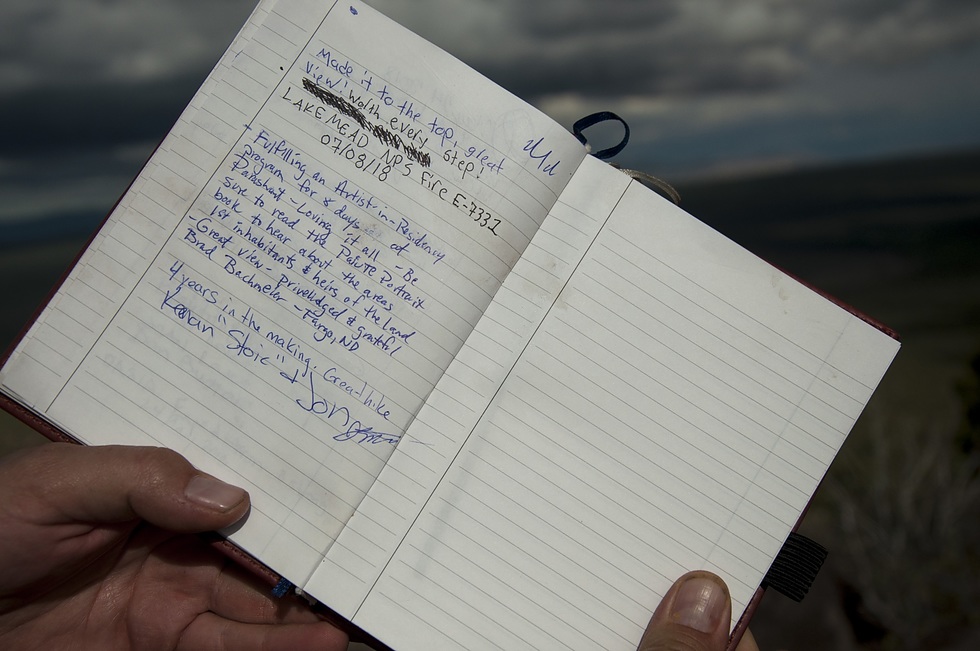 Made it to the top, great
view! Worth every step!
LAKE MEAD NPS Fire E-7332
07/08/18
- Fulfilling an Artist-in-Residency
Program for 8 days at
Parashant - Loving it all - Be
sure to read the PAIUTE Portrait
book to hear about the areas
1st inhabitants & heirs of the land
- Great view - priveledged & grateful
Brad Bachmeier - Fargo, ND
4 years in the making. Great hike
"Stoic" & Jon